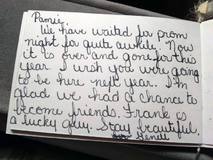 Pamie,
We have waited for prom
night for quite awhile. Now
it is over and gone for this
year. I wish you were going
to be here next year. I'm
glad we had a chance to
become friends. Frank is
a lucky guy. Stay beautiful.
Renee